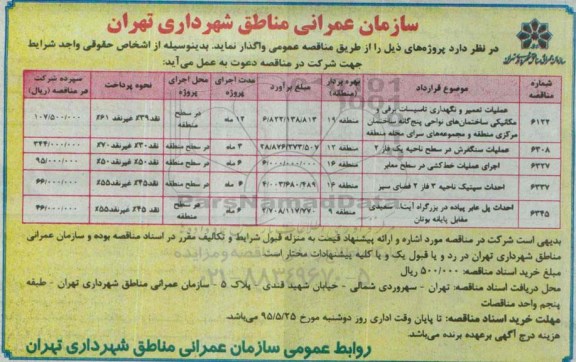 سازمان عمرانی مناطق شهرداری تهران
در نظر دارد پروژه‌های ذیل را از طریق مناقصه عمومی واگذار نماید. بدینوسیله از اشخاص حقوقی واجد شرایط
جهت شرکت در مناقصه دعوت به عمل می‌آید:
شماره مناقصه موضوع قرارداد بهره بردار (منطقه) مبلغ برآورد مدت اجرای پروژه محل اجرای پروژه نحوه پرداخت سپرده شرکت در مناقصه (ریال)
۶۱۲۲ عملیات تعمیر و نگهداری تاسیسات برقی و مکانیکی ساختمان‌های نواحی پنج‌گانه ساختمان مرکزی منطقه و مجموعه‌های سرای محله منطقه منطقه ۱۹ ۶/۸۲۲/۱۳۸/۸۱۳ ۱۲ ماه در سطح منطقه نقد ۳۹٪ غیرنقد ۶۱٪ ۱۰۷/۵۰۰/۰۰۰
۶۳۰۸ عملیات سنگفرش در سطح ناحیه یک فاز ۲ منطقه ۱۲ ۲۸/۸۷۶/۲۷۳/۵۰۷ ۳ ماه در سطح منطقه نقد ۳۰٪ غیرنقد ۷۰٪ ۳۴۴/۰۰۰/۰۰۰
۶۳۲۷ اجرای عملیات خط‌کشی در سطح معابر منطقه ۱۶ ۶/۰۰۰/۰۰۰/۰۰۰ ۶ ماه در سطح منطقه نقد ۵۰٪ غیرنقد ۵۰٪ ۹۵/۰۰۰/۰۰۰
۶۳۳۷ احداث سپتیک ناحیه ۲ فاز ۲ فضای سبز منطقه ۱۶ ۴/۰۰۳/۶۸۰/۲۸۹ ۶ ماه در سطح منطقه نقد ۴۵٪ غیرنقد ۵۵٪ ۶۶/۰۰۰/۰۰۰
۶۳۴۵ احداث پل عابر پیاده در بزرگراه آیت‌ا... سعیدی مقابل پایانه بوتان منطقه ۹ ۳/۷۰۸/۱۱۷/۷۷۰ ۶ ماه سطح منطقه نقد ۴۵٪ غیرنقد ۵۵٪ ۶۶/۰۰۰/۰۰۰
ParsNamadData
۰۲۱-۸۸۳۴۹۶۷۰-۵
بدیهی است شرکت در مناقصه مورد اشاره و ارائه پیشنهاد قیمت به منزله قبول شرایط و تکالیف مقرر در اسناد مناقصه بوده و سازمان عمرانی
مناطق شهرداری تهران در رد و یا قبول یک و یا کلیه پیشنهادات مختار است.
مبلغ خرید اسناد مناقصه: ۵۰۰/۰۰۰ ریال
محل دریافت اسناد مناقصه: تهران - سهروردی شمالی - خیابان شهید قندی - پلاک ۵ - سازمان عمرانی مناطق شهرداری تهران - طبقه
پنجم واحد مناقصات
مهلت خرید اسناد مناقصه: تا پایان وقت اداری روز دوشنبه مورخ ۹۵/۵/۲۵
هزینه درج آگهی برعهده برنده می‌باشد.
روابط عمومی سازمان عمرانی مناطق شهرداری تهران